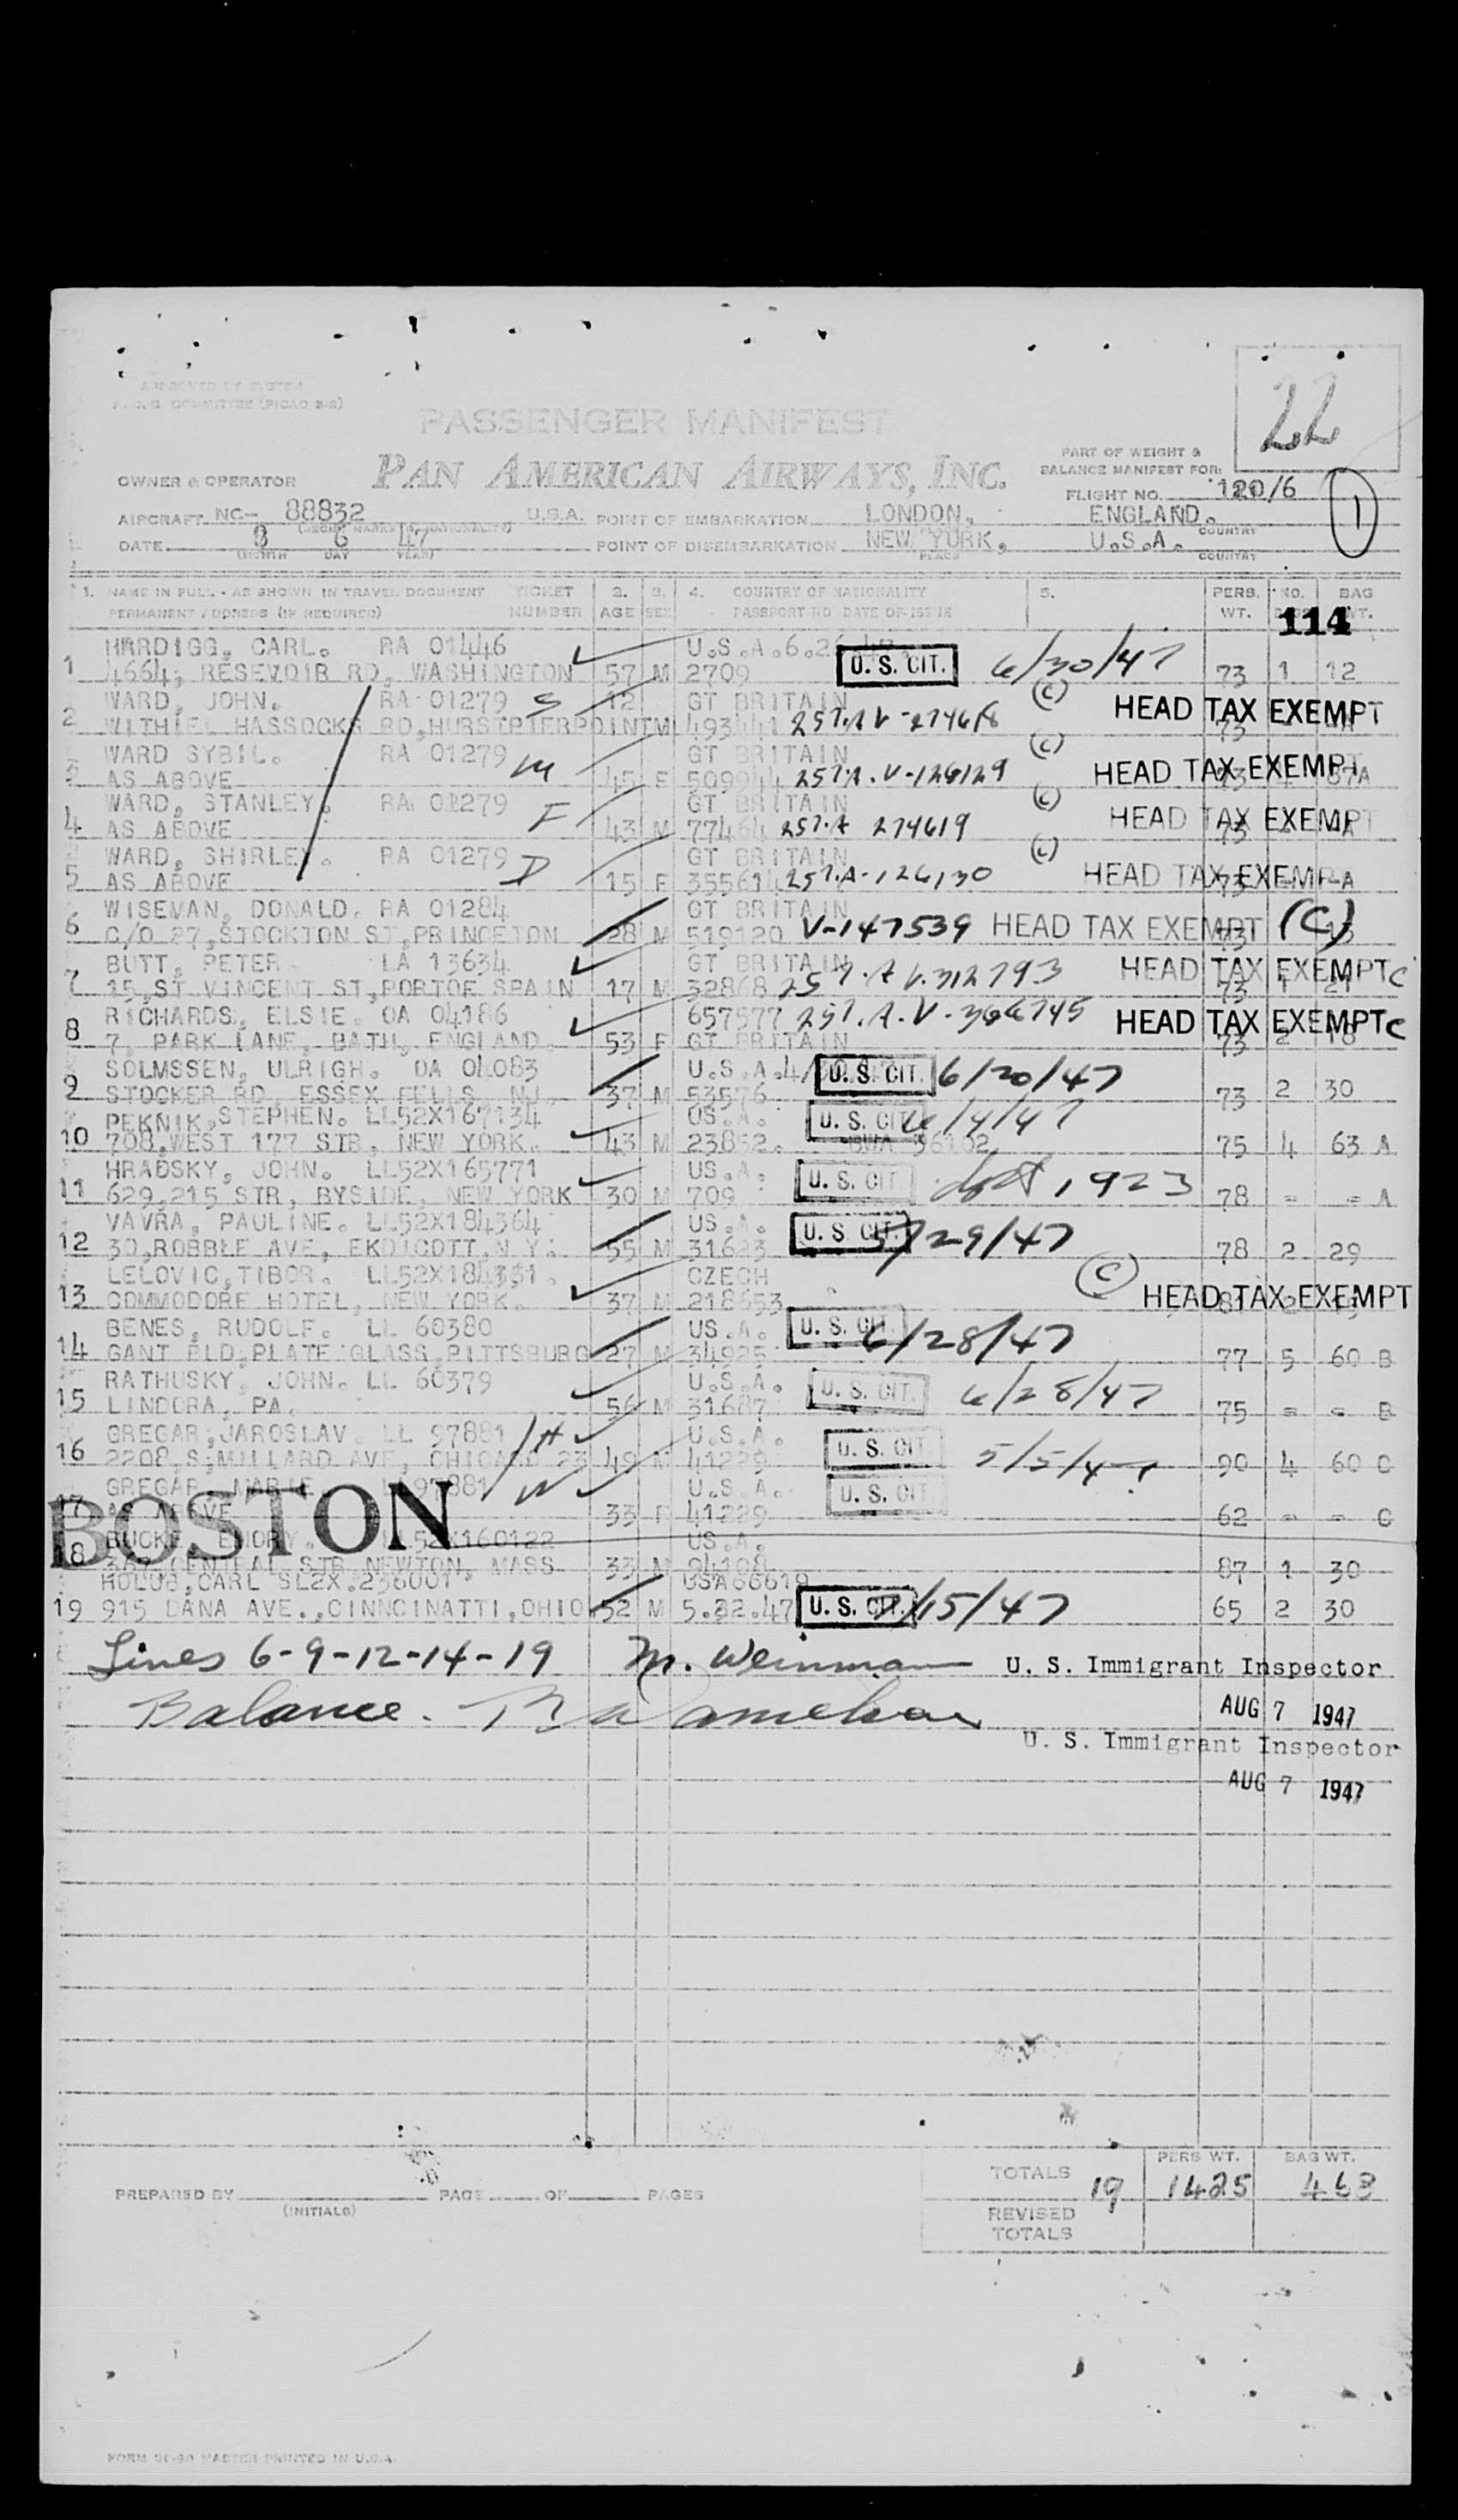 APPROVED BY SYSTEM
COMMITTEE (PICAO 3-2)
PASSENGER MANIFEST
22
PAN AMERICAN AIRWAYS, INC.
PART OF WEIGHT &
BALANCE MANIFEST FOR:
OWNER & OPERATOR
FLIGHT NO. 120/6
1
AIRCRAFT NC- 88832 U.S.A. POINT OF EMBARKATION LONDON, ENGLAND.
COUNTRY
DATE 8 6 47 POINT OF DISEMBARKATION NEW YORK, U.S.A.
(MONTH DAY YEAR) PLACE COUNTRY
1. NAME IN FULL - AS SHOWN IN TRAVEL DOCUMENT TICKET 2. 3. 4. COUNTRY OF NATIONALITY 5. PERS. NO. BAG
PERMANENT ADDRESS (IF REQUIRED) NUMBER AGE SEX PASSPORT NO DATE OF ISSUE WT. WT.
114
HARDIGG, CARL. RA 01446 U.S.A.
1 4664, RESEVOIR RD, WASHINGTON 57 M 2709 U. S. CIT. 6/30/47 73 1 12
WARD, JOHN. RA 01279 S 12 GT BRITAIN (C) HEAD TAX EXEMPT
2 WITHIEL HASSOCKS RD,HURSTPIERPOINT M 73
WARD SYBIL. RA 01279 M GT BRITAIN (C) HEAD TAX EXEMPT
3 AS ABOVE 45 F 257.A.V-126129
WARD, STANLEY. RA 01279 F GT BRITAIN (C) HEAD TAX EXEMPT
4 AS ABOVE 43 M 77464 257.A 274619 73
WARD, SHIRLEY. RA 01279 D GT BRITAIN (C)
5 AS ABOVE 15 F 355614 257.A-126130 HEAD TAX EXEMPT 73
WISEVAN, DONALD. RA 01284 GT BRITAIN
6 C/O 27,STOCKTON ST,PRINCETON 28 M 519120 V-147539 HEAD TAX EXEMPT (C) 73
BUTT, PETER. LA 13634 GT BRITAIN HEAD TAX EXEMPT C
7 15,ST VINCENT ST,PORTOF SPAIN 17 M 32868 257.A V.312793 73 1 21
RICHARDS, ELSIE. OA 04186 657577 HEAD TAX EXEMPT C
8 7, PARK LANE, BATH, ENGLAND. 53 F GT BRITAIN 73 2 18
SOLMSSEN, ULRIGH. OA 04083 U.S.A. U. S. CIT. 6/20/47
9 STOCKER RD, ESSEX FELLS, NJ. 37 M 53576 73 2 30
PEKNIK,STEPHEN. LL52X167134 US.A. U. S. CIT.
10 708,WEST 177 STR, NEW YORK. 43 M 23852. 75 4 63 A
HRADSKY, JOHN. LL52X165771 US.A. U. S. CIT. 1923
11 629,215 STR, BYSIDE, NEW YORK 30 M 709 78 = = A
VAVRA, PAULINE. LL52X184364 US.A. U. S. CIT. 5/29/47
12 30,ROBBLE AVE, EKDICOTT,N.Y. 55 M 31623 78 2 29
LELOVIC,TIBOR. LL52X184331. CZECH (C)
13 COMMODORE HOTEL, NEW YORK. 37 M 218653 HEAD TAX EXEMPT
BENES, RUDOLF. LL 60380 US.A. U. S. CIT. 6/28/47
14 GANT BLD,PLATE GLASS,PITTSBURG 27 M 34925 77 5 60 B
RATHUSKY, JOHN. LL 60379 U.S.A. U. S. CIT. 6/28/47
15 LINDORA, PA. 56 M 31687 75 = = B
GREGAR,JAROSLAV. LL 97881 H U.S.A. U. S. CIT. 5/5/47
16 2208,S,MILLARD AVE, CHICAGO 23 49 M 41229 90 4 60 C
GREGAR, MARIE. LL 97881 W U.S.A. U. S. CIT
17 AS ABOVE 33 F 41229 62 = = C
BOSTON
BUCKE, EMORY. LL52X160122 US.A.
18 367,CENTRAL STR NEWTON, MASS 33 M 94108 87 1 30
HOLUB,CARL SL2X.236001 USA66619
19 915 DANA AVE.,CINNCINATTI,OHIO 52 M 5.22.47 U. S. CIT. 7/15/47 65 2 30
Lines 6-9-12-14-19 M. Weinman U. S. Immigrant Inspector
Balance. AUG 7 1947
U. S. Immigrant Inspector
AUG 7 1947
PERS WT. BAG WT.
TOTALS 19 1425 463
PREPARED BY PAGE OF PAGES
(INITIALS)
REVISED
TOTALS
MASTER PRINTED IN U.S.A.